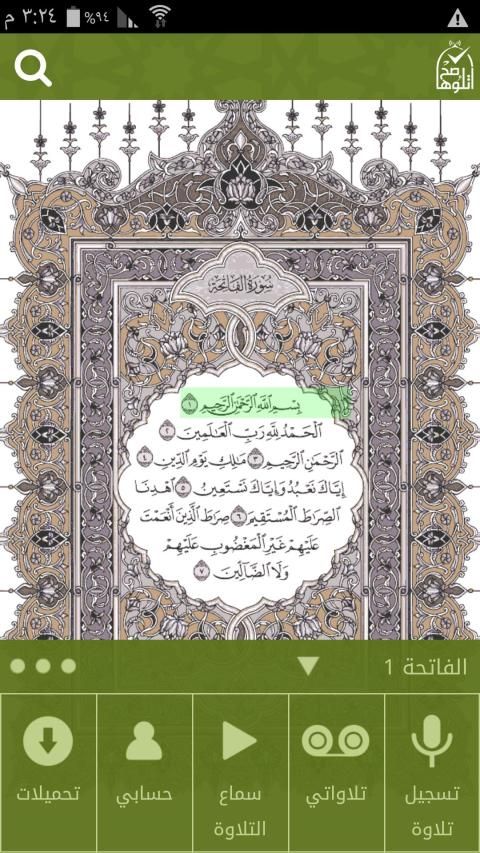 ٣:٢٤ م
%٩٤
صح
اتلوها
سُورَةُ الفَاتِحَةِ
بِسْمِ ٱللَّهِ ٱلرَّحْمَٰنِ ٱلرَّحِيمِ ١
ٱلْحَمْدُ لِلَّهِ رَبِّ ٱلْعَٰلَمِينَ ٢
ٱلرَّحْمَٰنِ ٱلرَّحِيمِ ٣ مَٰلِكِ يَوْمِ ٱلدِّينِ ٤
إِيَّاكَ نَعْبُدُ وَإِيَّاكَ نَسْتَعِينُ ٥ ٱهْدِنَا
ٱلصِّرَٰطَ ٱلْمُسْتَقِيمَ ٦ صِرَٰطَ ٱلَّذِينَ أَنْعَمْتَ
عَلَيْهِمْ غَيْرِ ٱلْمَغْضُوبِ عَلَيْهِمْ
وَلَا ٱلضَّآلِّينَ ٧
الفاتحة 1
تسجيل تلاوة
تلاواتي
سماع التلاوة
حسابي
تحميلات